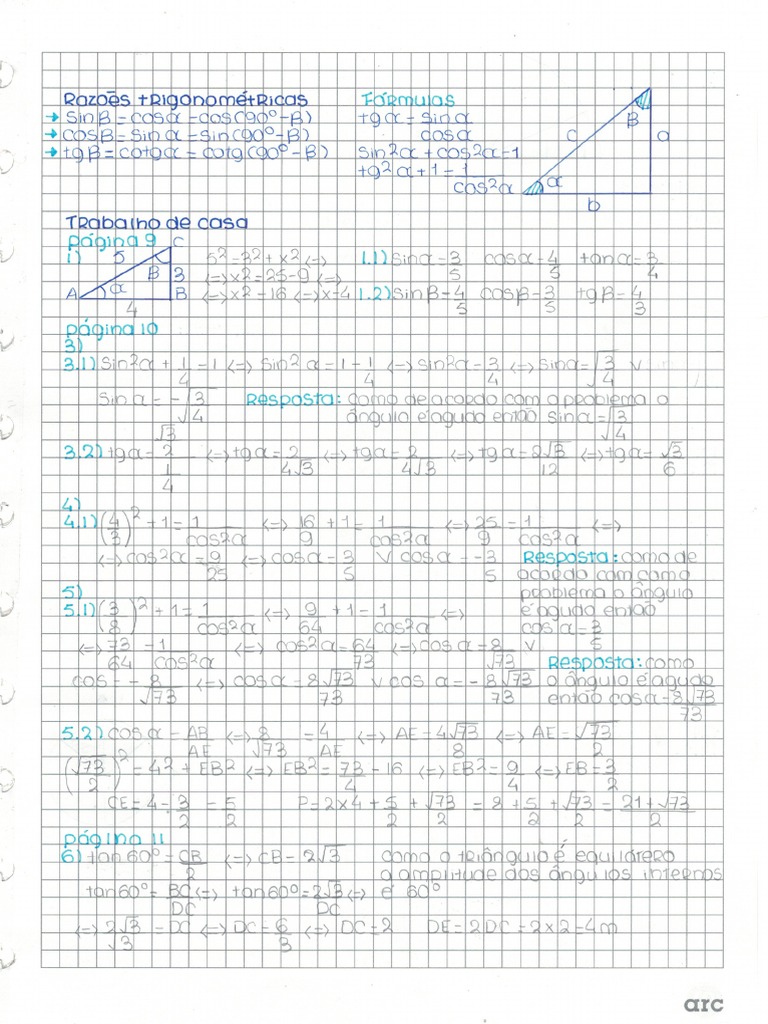 Razões trigonométricas
→ sinβ = cosα = cos(90º - β)
→ cosβ = sinα = sin(90º - β)
→ tgβ = cotgα = cotg(90º - β)
Fórmulas
tgα = sinα/cosα
sin²α + cos²α = 1
tg²α + 1 = 1/cos²α
β
c a
α
b
Trabalho de casa
página 9
1) 5 C β 3 A α B 4
5² = 3² + x² <=>
<=> x² = 25 - 9 <=>
<=> x² = 16 <=> x = 4
1.1) sinα = 3/5 cosα = 4/5 tanα = 3/4
1.2) sinβ = 4/5 cosβ = 3/5 tgβ = 4/3
página 10
3)
3.1) sin²α + 1/4 = 1 <=> sin²α = 1 - 1/4 <=> sin²α = 3/4 <=> sinα = √3/4 ∨
sinα = -√3/4 Resposta: como de acordo com o problema o
ângulo é agudo então sinα = √3/4
3.2) tgα = √3/2/1/4 <=> tgα = 2/4√3 <=> tgα = 2/4√3 <=> tgα = 2√3/12 <=> tgα = √3/6
4)
4.1) (4/3)² + 1 = 1/cos²α <=> 16/9 + 1 = 1/cos²α <=> 25/9 = 1/cos²α <=>
<=> cos²α = 9/25 <=> cosα = 3/5 ∨ cosα = -3/5 Resposta: como de
acordo com como
problema o ângulo
é agudo então
cosα = 3/5
5)
5.1) (3/8)² + 1 = 1/cos²α <=> 9/64 + 1 = 1/cos²α <=>
<=> 73/64 = 1/cos²α <=> cos²α = 64/73 <=> cosα = 8/√73 ∨
cos = -8/√73 <=> cosα = 8√73/73 ∨ cosα = -8√73/73
Resposta: como
o ângulo é agudo
então cosα = 8√73/73
5.2) cosα = AB/AE <=> 8/√73 = 4/AE <=> AE = 4√73/8 <=> AE = √73/2
(√73/2)² = 4² + EB² <=> EB² = 73/4 - 16 <=> EB² = 9/4 <=> EB = 3/2
CE = 4 - 3/2 = 5/2 P = 2×4 + 5/2 + √73/2 = 8 + 5/2 + √73/2 = 21 + √73/2
página 11
6) tan60º = CB/2 <=> CB = 2√3 como o triângulo é equilátero
a amplitude dos ângulos internos
é 60º
tan60º = BC/DC <=> tan60º = 2√3/DC <=>
<=> 2√3/√3 = DC <=> DC = 6/3 <=> DC = 2 DE = 2DC = 2×2 = 4m
arc